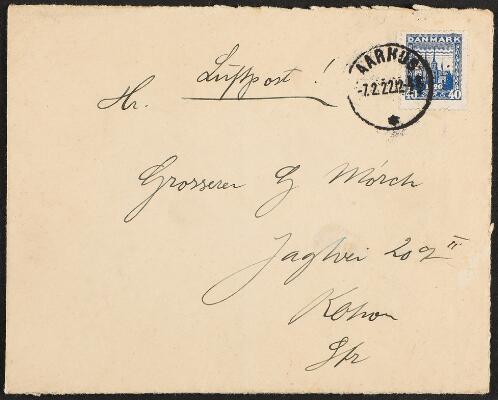 DANMARK
40 40
AARHUS
-7.2.22.12-
Luftpost!
Hr.
Grosserer G Mörch
Jagtvei 209 II
Kbhvn